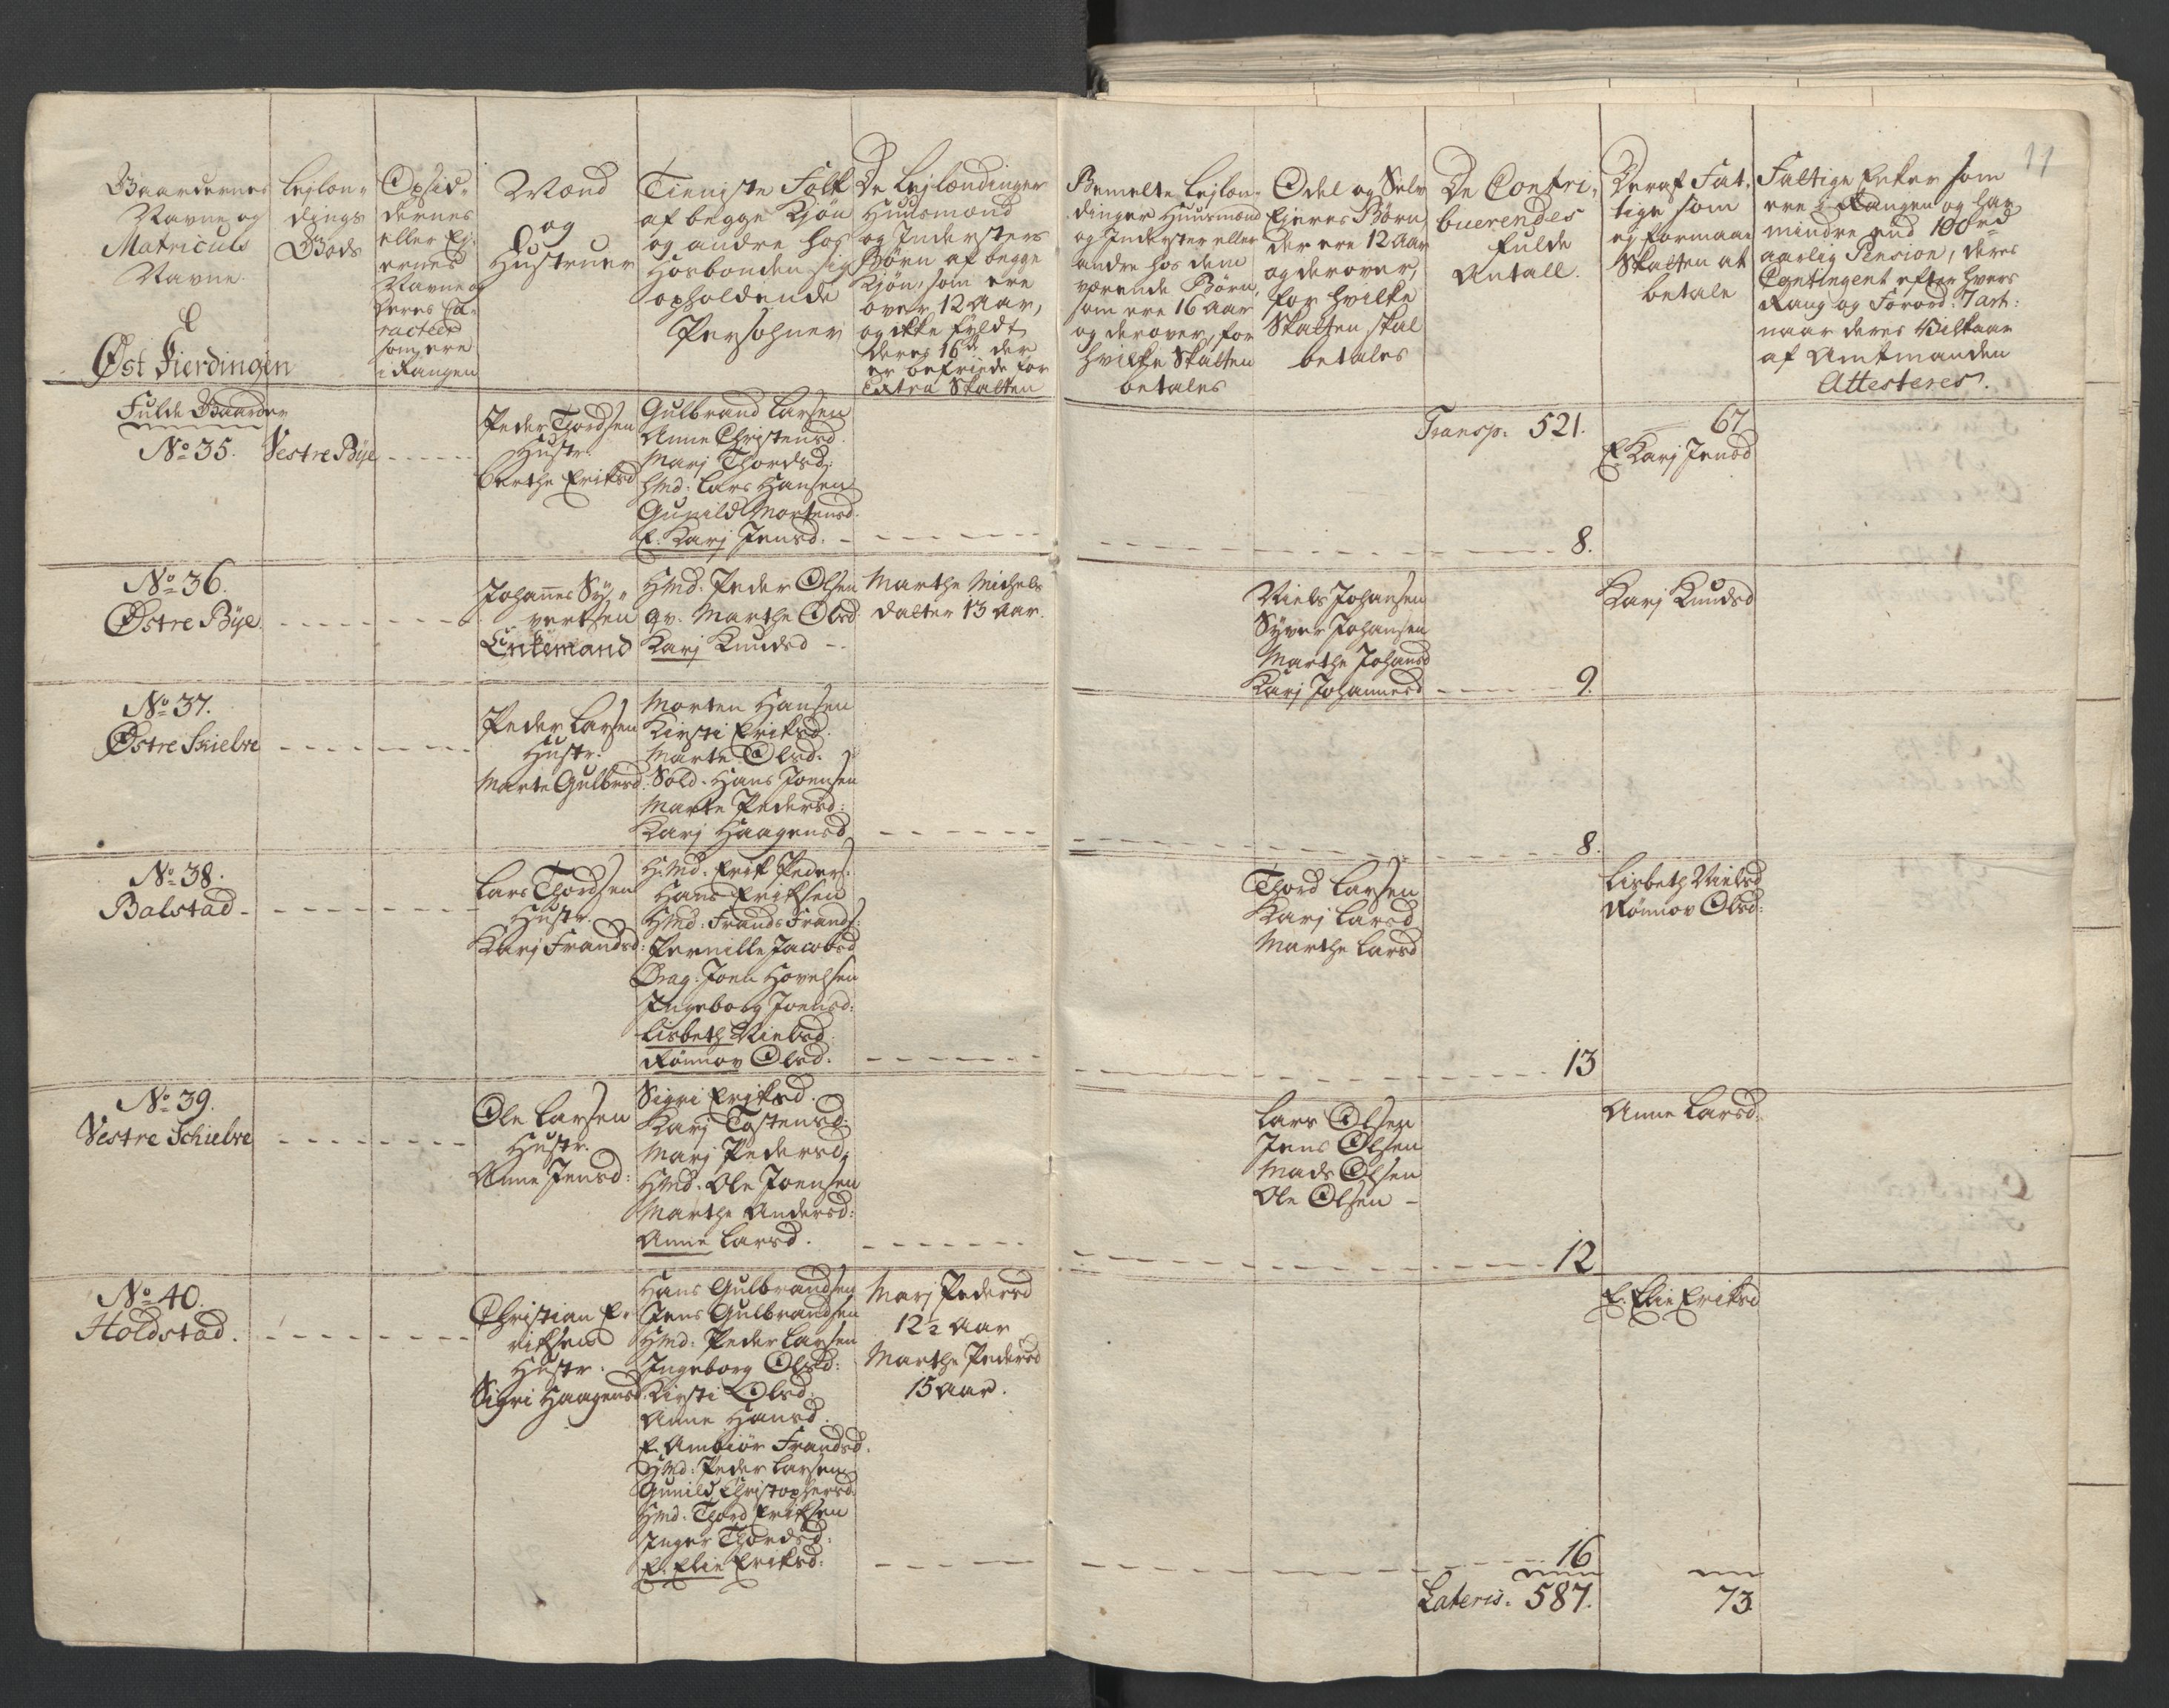 11
Gaardernes
Navne og
Matriculs
Navne.
Øst Fierdingen
Lejlæn-
dings
Gods
Opsid-
dernes
eller Ej-
ernes
Navne og
deres Ca-
racteer
som ere
i Rangen
Mænd
og
Hustruer
Tieniste Folk
af begge Kjøn
og andre hos
Hosbonden sig
opholdende
Persohner
De Lejlændinger
Huusmænd
og Indersters
Børn af begge
Kjøn, som ere
over 12 Aar,
og ikke fyldt
deres 16de der
er befriede for
Extra Skatten
Bemelte Lejlæn-
dinger Huusmænd
og Inderster eller
andre hos dem
værende Børn,
som ere 16 Aar
og derover, for
hvilke Skatten
betales
Odel og Selv
Ejeres Børn
der ere 12 Aar
og derover,
for hvilke
Skatten skal
betales
De Contri-
buerendes
fulde
Antall.
Deraf Fat-
tige som
ej formaar
Skatten at
betale
Fattige Enker som
ere i Rangen og har
mindre end 100 rd
aarlig Pension, deres
Contingent efter hvers
Rang og Forord: 7 art:
naar deres Vilkaar
af Amtmanden
Attesteres.
Fulde Gaarder
No 35. Vestre Bÿe
Peder Thordsen
Hustr.
Berthe Eriksd
Gulbrand Larsen
Anne Christensd.
Marj Thordsd.
Hmd: Lars Hansen
Gunild Mortensd.
E. Karj Jensd.
Transp: 521.
67
E. Karj Jensd
8.
No 36.
Østre Bÿe.
Johannes Sÿ-
vertsen
Enkemand
Hmd. Peder Olsen
Qv. Marthe Olsd.
Karj Knudsd
Marthe Michels
datter 13 Aar.
Niels Johansen
Sÿver Johansen
Marthe Johansd
Karj Johannesd
9.
Karj Knudsd
No 37.
Østre Skielve
Peder Larsen
Hustr.
Marte Gulbrsd.
Morten Hansen
Kirsti Eriksd.
Marte Olsd.
Sold. Hans Joensen
Marte Pedersd:
Karj Haagensd
8.
No 38.
Balstad
Lars Thordsen
Hustr.
Karj Frandsd:
H.md. Erik Peders:
Hans Eriksen
Hmd: Frands Frands:
Pernille Jacobsd
Drag. Joen Hovelsen
Ingeborg Joensd:
Lisbeth Nielsd
Rønnov Olsd.
Thord Larsen
Karj Larsd
Marthe Larsd
13
Lisbeth Nielsd
Rønnov Olsd:
No 39.
Vestre Schielve
Ole Larsen
Hustr.
Anne Jensd:
Sigri Eriksd.
Karj Tostensd.
Marj Pedersd.
Hmd. Ole Joensen
Marthe Andersd:
Anne Larsd.
Lars Olsen
Jens Olsen
Mads Olsen
Ole Olsen
12
Anne Larsd.
No 40.
Holdstad.
Christian Er-
richsen
Hustr.
Sigri Haagensd.
Hans Gulbrandsen
Jens Gulbrandsen
Hmd: Peder Larsen
Ingeborg Olsd:
Kirsti Olsd:
Anne Hansd.
E. Ambiør Frandsd.
Hmd: Peder Larsen
Gunild Christophersd.
Hmd. Thord Eriksen
Inger Thordsd:
E. Elie Eriksd:
Marj Pedersd
12½ Aar
Marthe Pedersd
15 Aar.
E. Elie Eriksd
16
Lateris. 587.
73